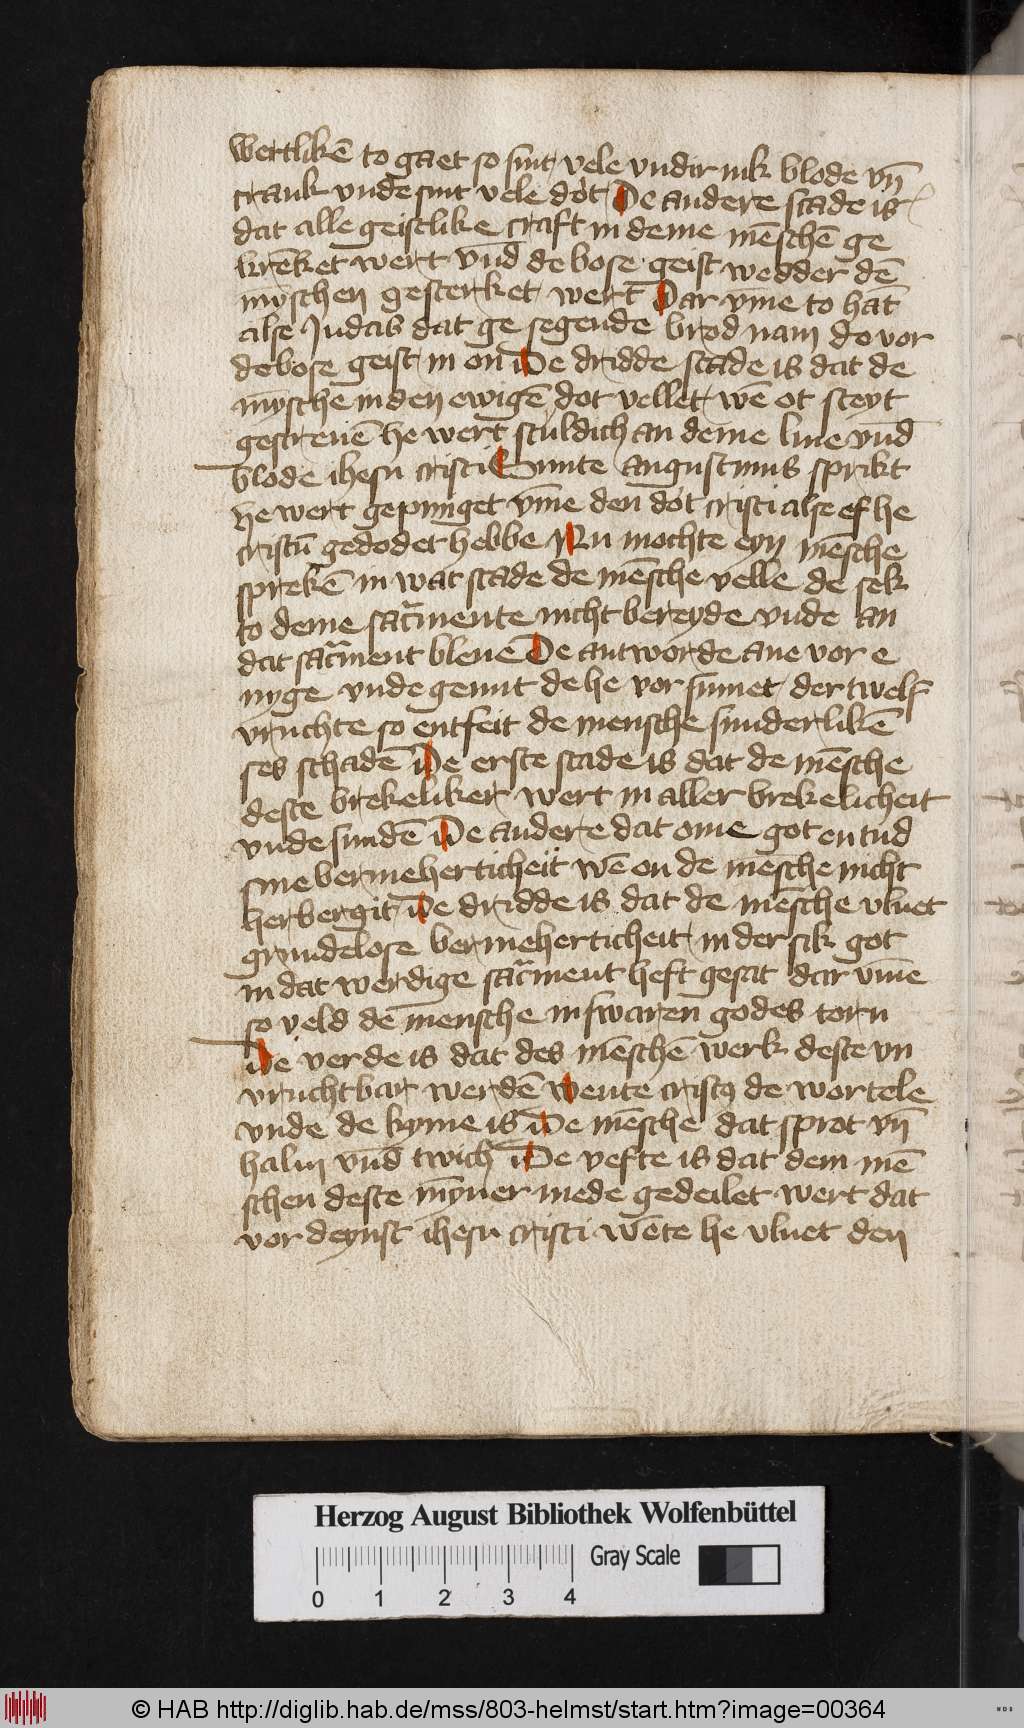 wertlikē to gaet so sint vele vndir iuk blode vn̄
crank vnde sint vele dot De andere scade is
dat alle geistlike craft in deme mēschē ge
krēket wert vnd̄ de bose geist wedder dē
mȳschen gesterket wert Dar vm̄e to hāt
alse Judas dat ge segende brod nam do vor
de bose geist in on De dridde scade is dat de
mȳsche in den ewigē dot vellet wē ot steyt
gescreuē he wert sculdich an deme liue vnd̄
blode ihesu cristi Sunte augustinus sprikt
he wert gepiniget vm̄e den dot cristi alse ef he
cristū gedodet hebbe Nu mochte eyn mēsche
sprekē in wat scade de mēsche velle de sek
to deme sac̄mente nicht bereyde vnde an
dat sac̄ment bleue De antworde aue vor e
nyge vnde geuut de he vor sumet der twelf
vruchte so entfeit de mensche sunderlikē
ses schadē De erste scade is dat de mēsche
deste brekeliker wert in aller brekelicheit
vnde sundē De andere dat ome got en tud
sine bermeherticheit wē on de mēsche nicht
herbergit De dridde is dat de mēsche vluet
grundelose bermeherticheit in der sik got
in dat werdige sac̄ment heft gesat dar vm̄e
so veld de mensche in swaren godes torn
De verde is dat des mēschē werk deste vn
vruchtbar werdē wente cristꝯ de wortele
vnde de kyme is De mēsche dat sprot vn̄
halm vnd̄ twich De vefte is dat dem mē
schen deste mȳner mede gedeilet wert dat
vor deynst ihesu cristi wēte he vluet den
Herzog August Bibliothek Wolfenbüttel
Gray Scale
0 1 2 3 4
© HAB http://diglib.hab.de/mss/803-helmst/start.htm?image=00364